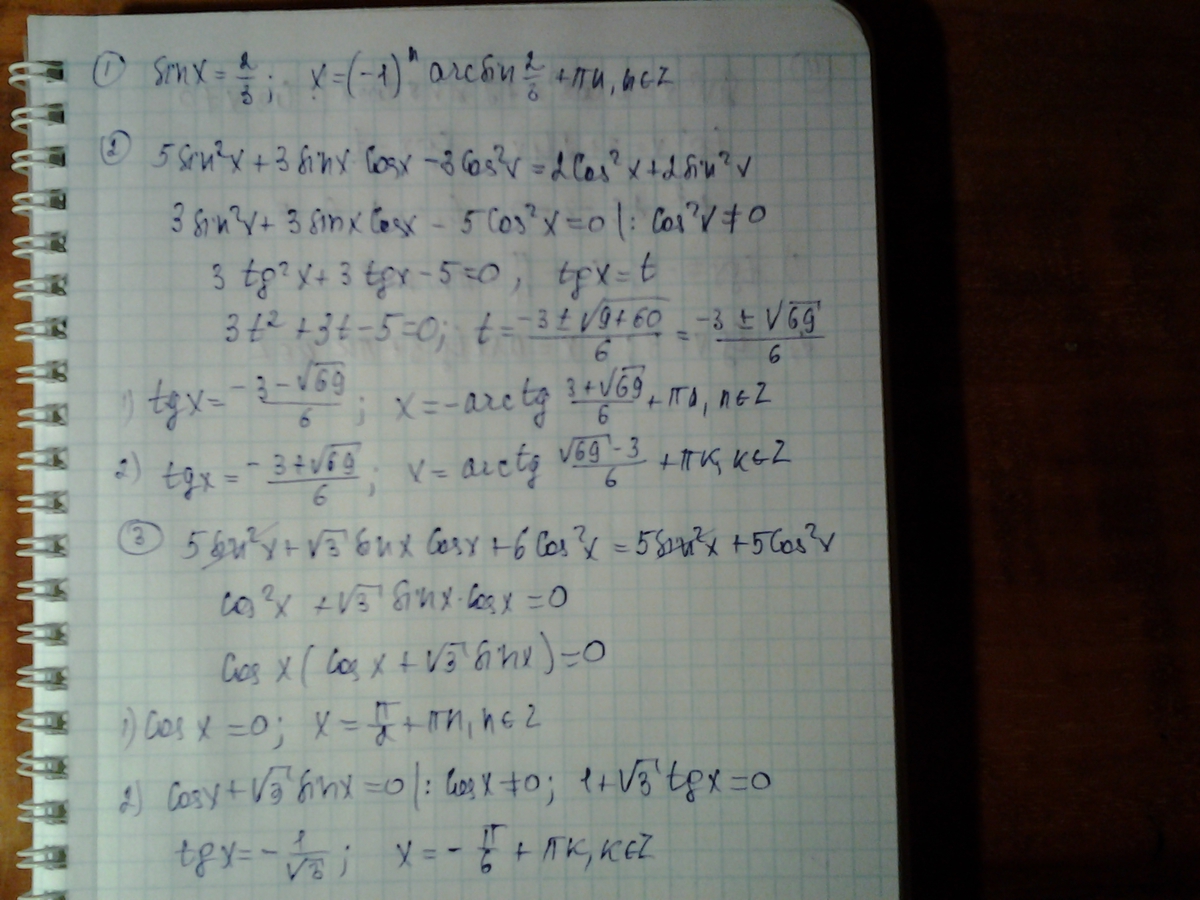 ① sinx = 2/3; x = (-1)ⁿ arcsin 2/3 + πn, n∈Z
② 5sin²x + 3sinx cosx - 3cos²x = 2cos²x + 2sin²x
3sin²x + 3sinx cosx - 5cos²x = 0 |: cos²x ≠ 0
3tg²x + 3tgx - 5 = 0, tgx = t
3t² + 3t - 5 = 0; t = (-3 ± √(9+60))/6 = (-3 ± √69)/6
1) tgx = (-3 - √69)/6; x = -arctg (3+√69)/6 + πn, n∈Z
2) tgx = (-3+√69)/6; x = arctg (√69 - 3)/6 + πk, k∈Z
③ 5sin²x + √3 sinx cosx + 6cos²x = 5sin²x + 5cos²x
cos²x + √3 sinx·cosx = 0
cosx (cosx + √3 sinx) = 0
1) cosx = 0; x = π/2 + πn, n∈Z
2) cosx + √3 sinx = 0 |: cosx ≠ 0; 1 + √3 tgx = 0
tgx = -1/√3; x = -π/6 + πk, k∈Z